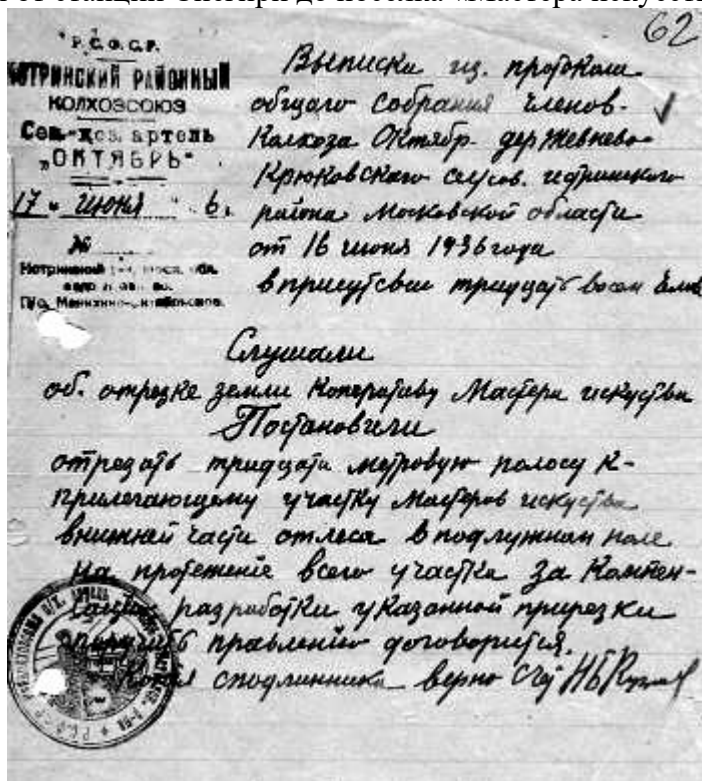 62
Р.С.Ф.С.Р.
ИСТРИНСКИЙ РАЙОННЫЙ
КОЛХОЗСОЮЗ
Сел-хоз. артель
„ОКТЯБРЬ"
17 " июня 6.
№
Выписка из. протокола
общаго собрания членов
Колхоза Октябр. держевнево
Крюковскаго сельсов. истринскаго
района Московской области
от 16 июня 1936 года
в присутсвие тридцать восем
Слушали
об. отрезке земли Коперативу Мастера искуства
Постановили
отрезать тридцати метровую полосу к-
прилегающему участку Мастеров искуства
внижней части отлеса в подлужнам поле
на протежение всего участка за Компен-
сацию разработки указанной прирезки
поручить правлению договорится.
Копия сподлинника верно Счу